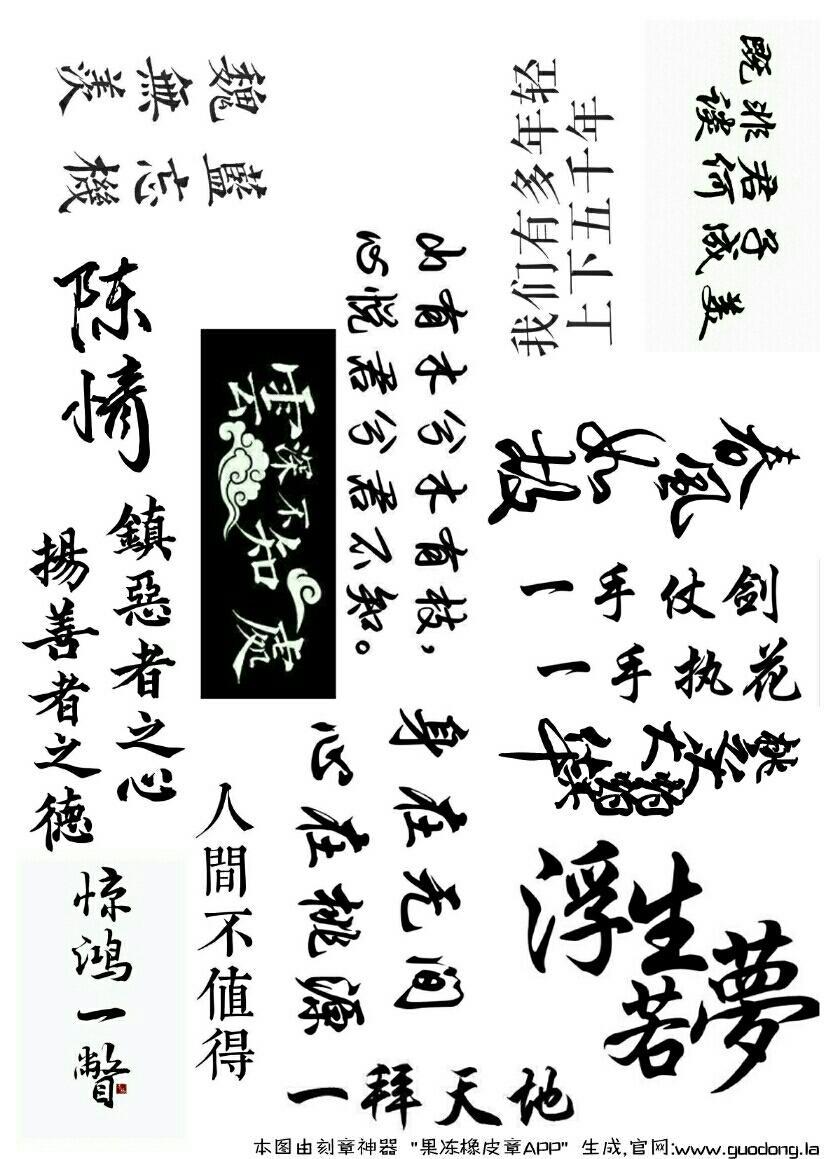 魏無羨
藍忘機
我们有多年轻
上下五千年
既非君子
谈何成美
陈情
雲深不知處
山有木兮木有枝,
心悦君兮君不知。
春風如
一手仗剑
一手执花
鎮惡者之心
揚善者之德
身在无间
心在桃源
人間不值得
惊鸿一瞥
浮生若夢
一拜天地
本图由刻章神器 "果冻橡皮章APP" 生成,官网:www.guodong.la